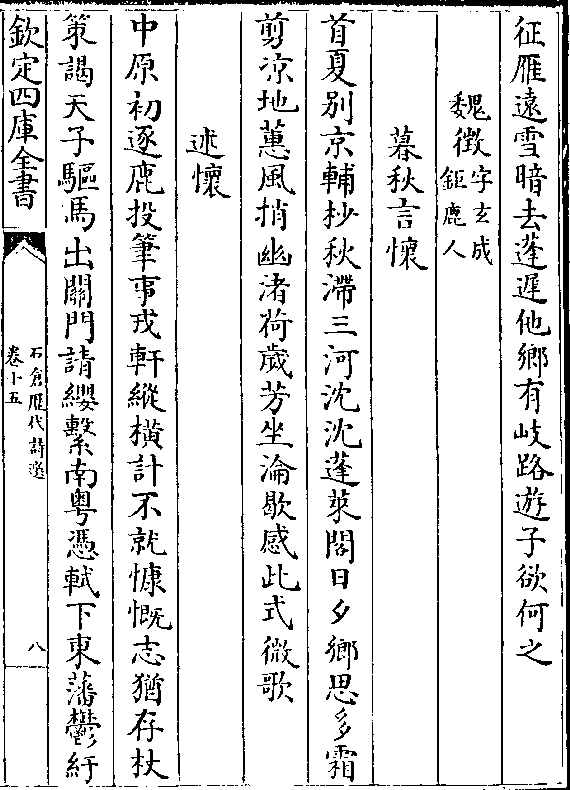 征雁遠雪暗去蓬遲他鄉有岐路遊子欲何之
魏徵字玄成鉅鹿人
暮秋言懷
首夏别京輔杪秋滯三河沈沈蓬萊閣日夕鄉思多霜
剪凉地蕙風捎幽渚荷歲芳坐淪歇感此式微歌
述懷
中原初逐鹿投筆事戎軒縱横計不就慷慨志猶存杖
策謁天子驅馬出關門請纓繫南粤憑軾下東藩鬱紆
欽定四庫全書
石倉歷代詩選
卷十五
八